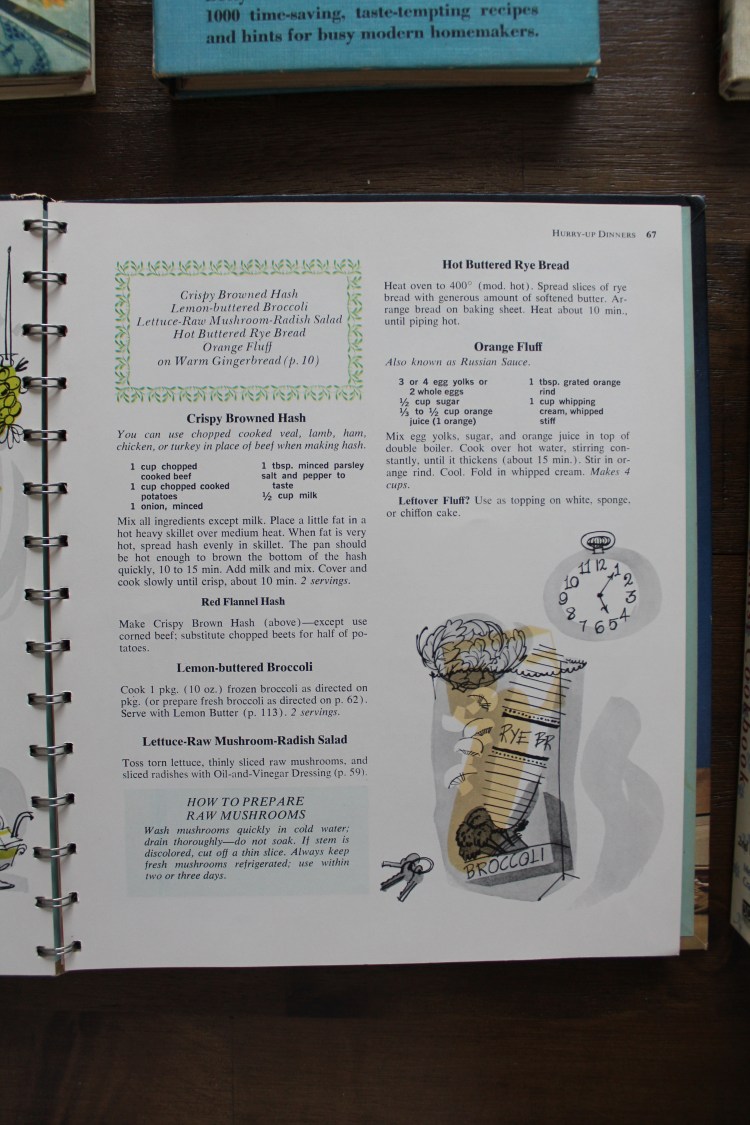 1000 time-saving, taste-tempting recipes
and hints for busy modern homemakers.
HURRY-UP DINNERS 67
Crispy Browned Hash
Lemon-buttered Broccoli
Lettuce-Raw Mushroom-Radish Salad
Hot Buttered Rye Bread
Orange Fluff
on Warm Gingerbread (p. 10)
Crispy Browned Hash
You can use chopped cooked veal, lamb, ham,
chicken, or turkey in place of beef when making hash.
1 cup chopped
cooked beef
1 cup chopped cooked
potatoes
1 onion, minced
1 tbsp. minced parsley
salt and pepper to
taste
½ cup milk
Mix all ingredients except milk. Place a little fat in a
hot heavy skillet over medium heat. When fat is very
hot, spread hash evenly in skillet. The pan should
be hot enough to brown the bottom of the hash
quickly, 10 to 15 min. Add milk and mix. Cover and
cook slowly until crisp, about 10 min. 2 servings.
Red Flannel Hash
Make Crispy Brown Hash (above)—except use
corned beef; substitute chopped beets for half of po-
tatoes.
Lemon-buttered Broccoli
Cook 1 pkg. (10 oz.) frozen broccoli as directed on
pkg. (or prepare fresh broccoli as directed on p. 62).
Serve with Lemon Butter (p. 113). 2 servings.
Lettuce-Raw Mushroom-Radish Salad
Toss torn lettuce, thinly sliced raw mushrooms, and
sliced radishes with Oil-and-Vinegar Dressing (p. 59).
HOW TO PREPARE
RAW MUSHROOMS
Wash mushrooms quickly in cold water;
drain thoroughly—do not soak. If stem is
discolored, cut off a thin slice. Always keep
fresh mushrooms refrigerated; use within
two or three days.
Hot Buttered Rye Bread
Heat oven to 400° (mod. hot). Spread slices of rye
bread with generous amount of softened butter. Ar-
range bread on baking sheet. Heat about 10 min.,
until piping hot.
Orange Fluff
Also known as Russian Sauce.
3 or 4 egg yolks or
2 whole eggs
½ cup sugar
⅓ to ½ cup orange
juice (1 orange)
1 tbsp. grated orange
rind
1 cup whipping
cream, whipped
stiff
Mix egg yolks, sugar, and orange juice in top of
double boiler. Cook over hot water, stirring con-
stantly, until it thickens (about 15 min.). Stir in or-
ange rind. Cool. Fold in whipped cream. Makes 4
cups.
Leftover Fluff? Use as topping on white, sponge,
or chiffon cake.
11 12 1
10 2
9 3
8 4
7 6 5
RYE BR
BROCCOLI